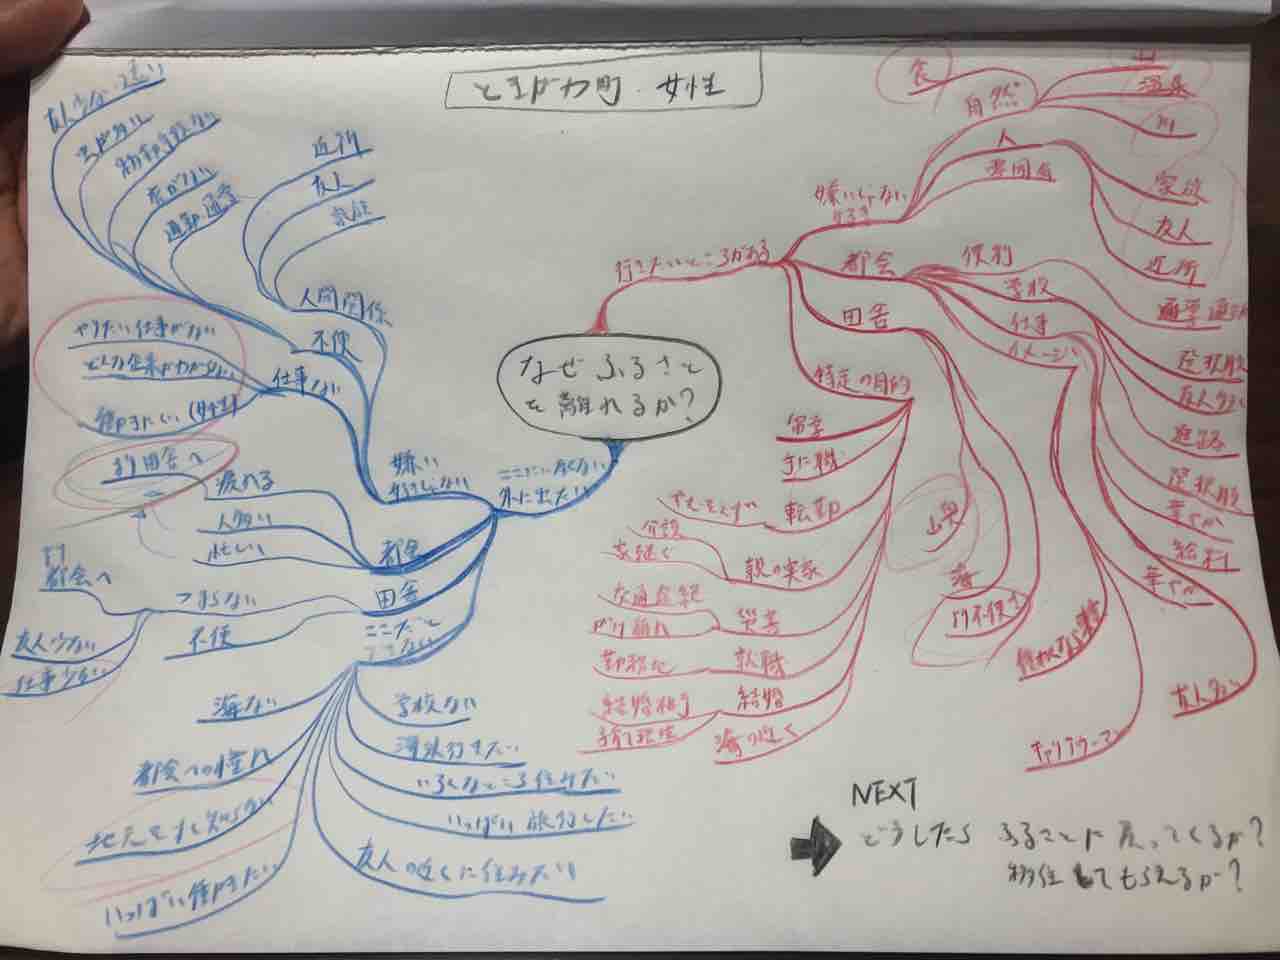 ときがわ町 女性
なぜふるさと
を離れるか?
行きたいところがある
嫌いじゃない
自然
食
温泉
川
人
雰囲気
家族
友人
近所
都会
便利
学校
仕事
イメージ
通学 通勤
選択肢
友人多い
進路
選択肢
華やか
給料
華やか
友人多い
キャリアウーマン
田舎
海
より不便さ
特定の目的
留学
転勤
親の実家
介護
家継ぐ
災害
交通途絶
がけ崩れ
就職
勤務地
結婚
結婚相手
子育て環境
海の近く
ここにいたくない
外に出たい
嫌い
好きじゃない
人間関係
近所
友人
家族
不便
友人少ない・遠い
店がない
物都手段ない
通勤 通学
仕事ない
やりたい仕事がない
どんな企業かわからない
働きにくい(女性)
都会
疲れる
より田舎へ
人多い
忙しい
田舎
つまらない
より
都会へ
友人少ない
仕事少ない
不便
ここだと
できない
海ない
都会への憧れ
地元をよく知らない
いっぱい働きたい
学校ない
海外行きたい
いろんなところ住みたい
いっぱい旅行したい
友人の近くに住みたい
NEXT
どうしたら ふるさとに戻ってくるか?
移住してもらえるか?